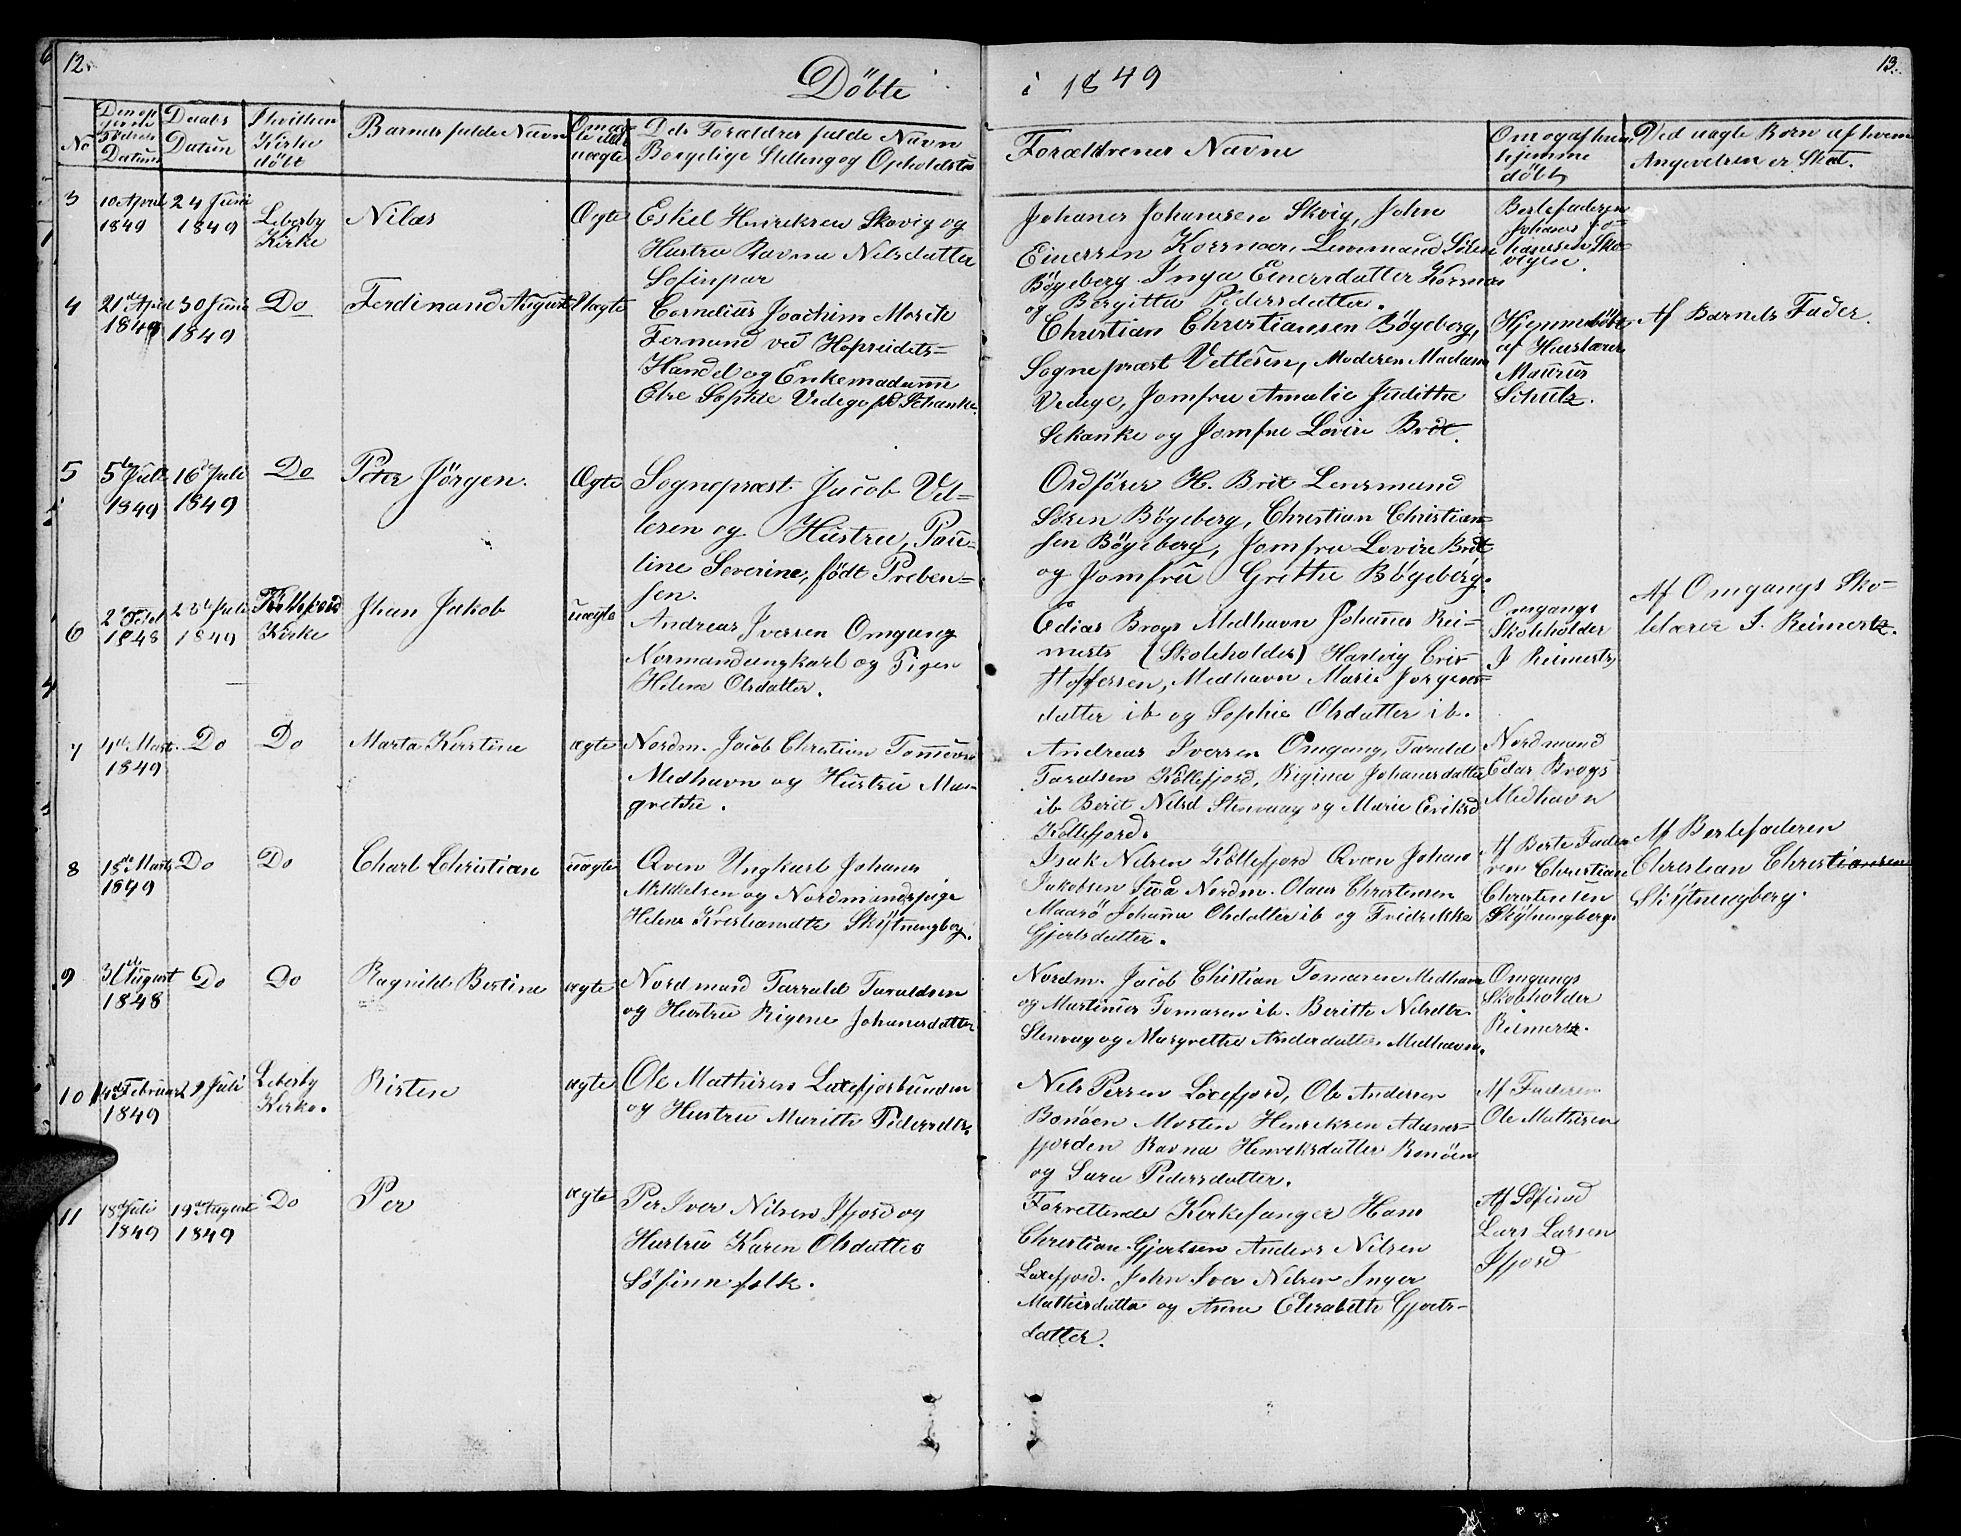 12.
Döbte
i 1849
13.
No
Datum
Daabs
Datum
Kirke
döbt
Barnets fulde Navn
uægte
Dets Forældres fulde Navn
Borgelige Stilling og Opholdsted
Forældrenes Navne
Om og af hvem
hjemme
döbt
Ved uægte Börn af hvem
Angivelsen er Skat.
3
10 April
1849
24 Juni
1849
Lebesby
Kirke
Nilas
Ægte
Eskel Henriksen Skovig og
Hustru Ravna Nilsdatter
Söfinpar
Johanes Johansen Skvig, John
Einersen Korsnæs, Lensmand Sören
Bögeberg Inga Einersdatter Korsnæs
og Bergitta Pedersdatter.
Johanes Jo-
hansen Sko-
vigen.
4
21de April
1849
30 Juni
1849
Do
Ferdinand August
Uægte
Cornelius Joachim Moritz
Fernand ved Hopseidets-
Handel og Enkemadame
Else Sophie Vedege f Schanke.
Christian Christiansen Bögeberg,
Sognepræst Vetlesen, Moderen Madam
Vedege, Jomfru Amalie Judithe
Schanke og Jomfru Lovise Brit.
Hjemmedöbt
af Huslærer
Maurus
Schulz.
Af Barnets Fader.
5
5de Juli
1849
16de Juli
1849
Do
Peter Jörgen.
Ægte
Sognepræst Jacob Vet-
lesen og Hustru, Pau-
line Severine, födt Preben-
sen.
Ordförer H. Brit Lensmand
Sören Bögeberg, Christian Christian-
sen Bögeberg, Jomfru Lovise Brit
og Jomfru Grethe Bögeberg.
6
1848
23de Juli
1849
Kjöllefjord
Kirke
Jhan Jakob
uægte
Andreas Iversen Omgang
Normandungkarl og Pigen
Helene Olsdatter.
Edias Brogs Medhavn Johannes Rei-
merts (Skoleholder) Hartvig Cris-
toffersen, Medhavn Marie Jorgens-
datter ib og Sophie Olsdatter ib.
Omgangs
Skoleholder
J Reimertz
Af Omgangs Sko-
lelærer J. Reimertz.
7
4de Marts.
1849
Do
Do
Marta Kirstine
ægte
Nordm. Jacob Christian
Medhavn og Hustru Mar-
grethe.
Andreas Iversen Omgang, Tarald
Taralsen Köllefjord, Rigina Johanesdatter
ib Berit Nilsd Stenvaag og Marie Eriksd
Kollefjord.
Nordmand
Edias Brogs
Medhavn
8
15de Marts
1849
Do
Do
Charl Christian
uægte
Qven Ungkarl Johanes
Mikkelsen og Nordmandspige
Helene Kristiansdtr Skjötningberg.
Isak Nilsen Kollefjord Qvæn Johan
Jakobsen Nordm. Olaus Christensen
Maasö Johanne Olsdatter ib og Fridrikke
Gjertsdatter.
Af Borte Fade-
ren Christian
Christensen
Skjötningberg.
Af Bortefaderen
Christian Christiansen
Skjötningberg.
9
31de August
1848
Do
Do
Ragnilde Bertine
ægte
Nordmand Tarrald Taraldsen
og Hustru Rigene Johanesdatter
Nordm. Jacob Christian Tomasen Medhavn
og Martinus Tomasen ib. Berithe Nilsdtr.
Stenvaag og Margrethe Andersdatter Medhavn.
Omgangs
Skoleholder
Reimertz.
10
14de Februar
1849
1 Juli
Lebesby
Kirke.
Kirsten
ægte
Ole Mathisen Laxefjorbunden
og Hustru Marithe Pedersdtr.
Nils Persen Laxefjord, Ole Andersen
Bonöen Morten Henriksen Adams-
fjorden Ravna Henriksdatter Bonöen
og Sara Pedersdatter.
Af Faderen
Ole Mathisen
11
18de Juli
1849
19de August
1849
Do
Per
ægte
Per Iver Nilsen Ifjord og
Hustru Karen Olsdatter
Söfinn folk.
Forrettende Kirkesanger Hans
Christian Gjertsen Anders Nilsen
Laxefjord. John Iver Nilsen Inger
Mathisdatter og Anne Elisabeth Gjerts-
datter.
Af Söfind
Lars Larsen
Ifjord